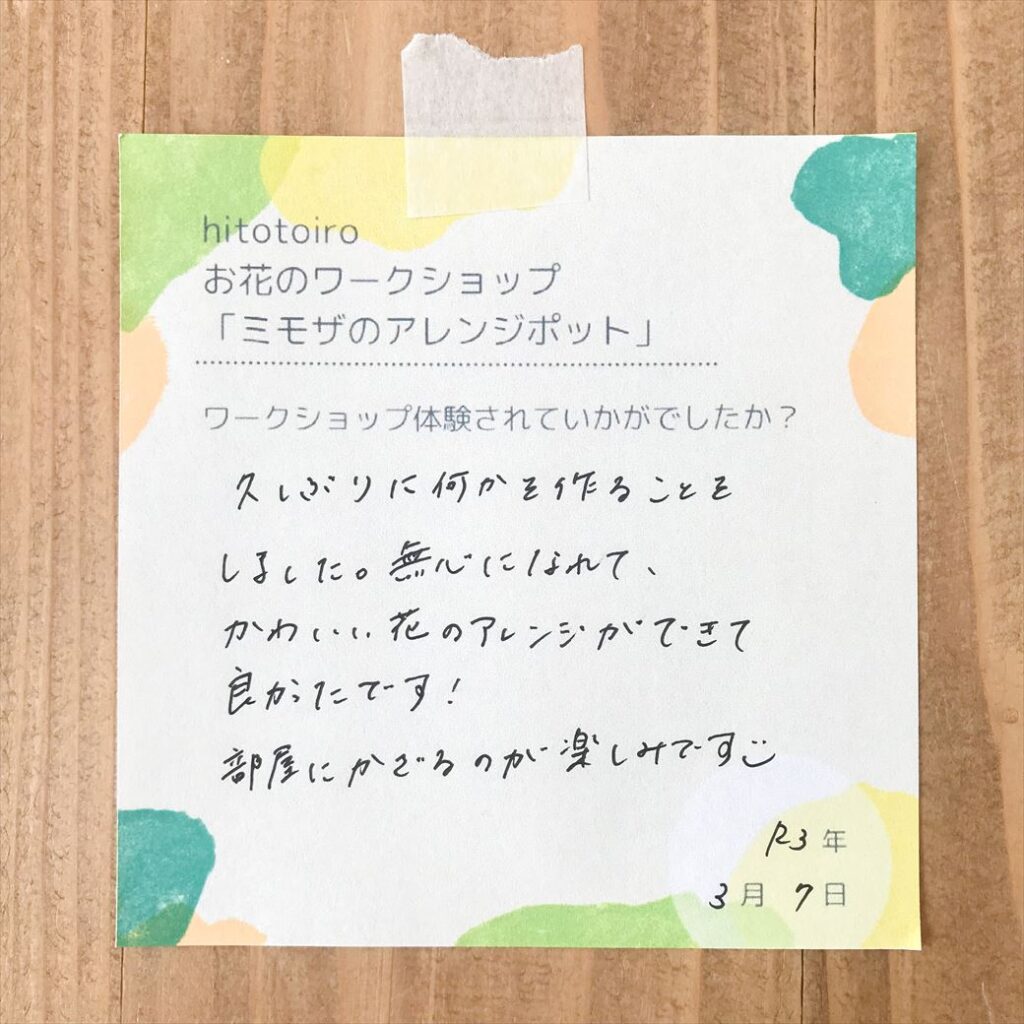 hitotoiro
お花のワークショップ
「ミモザのアレンジポット」
ワークショップ体験されていかがでしたか？
久しぶりに何かを作ることを
しました。無心になれて、
かわいい花のアレンジができて
良かったです！
部屋にかざるのが楽しみです
R3年
3月7日